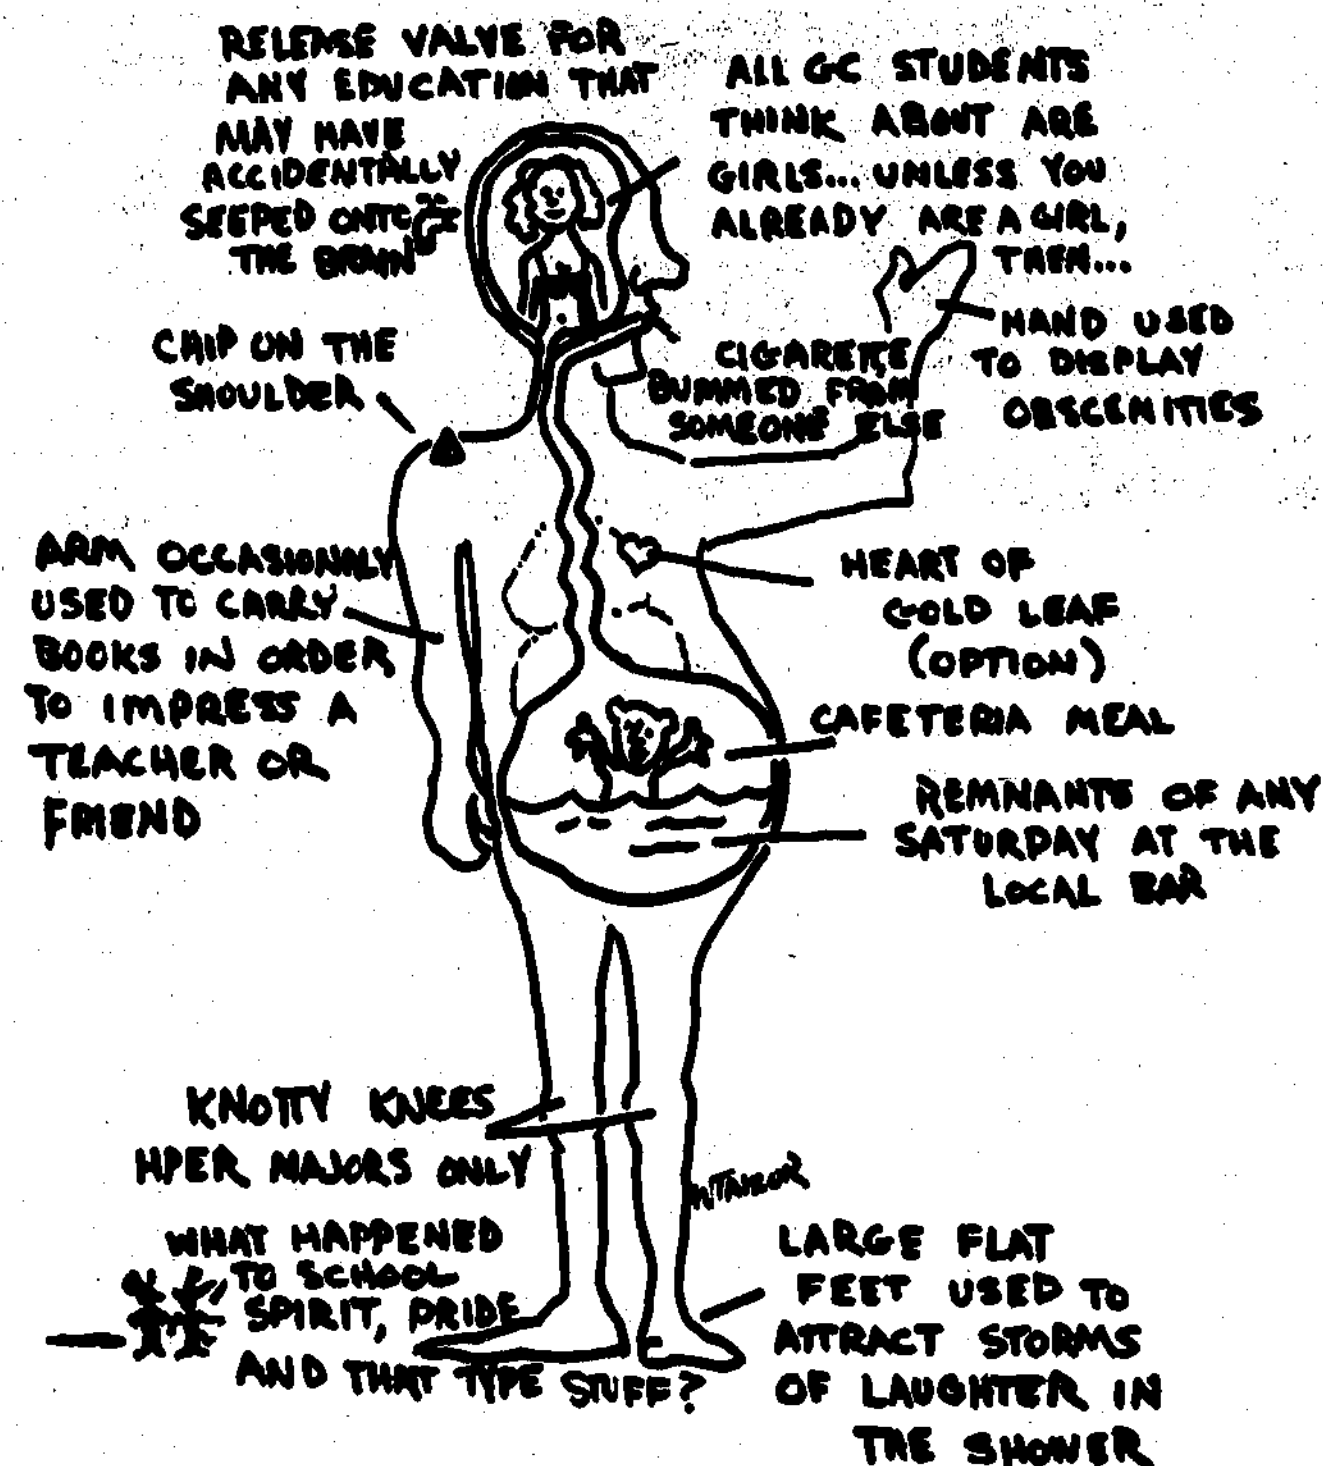 RELEASE VALVE FOR
ANY EDUCATION THAT
MAY HAVE
ACCIDENTALLY
SEEPED ONTO
THE BRAIN
ALL GC STUDENTS
THINK ABOUT ARE
GIRLS... UNLESS YOU
ALREADY ARE A GIRL,
THEN...
HAND USED
TO DISPLAY
OBSCENITIES
CIGARETTE
BUMMED FROM
SOMEONE ELSE
CHIP ON THE
SHOULDER
ARM OCCASIONALY
USED TO CARRY
BOOKS IN ORDER
TO IMPRESS A
TEACHER OR
FRIEND
HEART OF
GOLD LEAF
(OPTION)
CAFETERIA MEAL
REMNANTS OF ANY
SATURDAY AT THE
LOCAL BAR
KNOTTY KNEES
HPER MAJORS ONLY
WHAT HAPPENED
TO SCHOOL
SPIRIT, PRIDE
AND THAT TYPE STUFF?
LARGE FLAT
FEET USED TO
ATTRACT STORMS
OF LAUGHTER IN
THE SHOWER